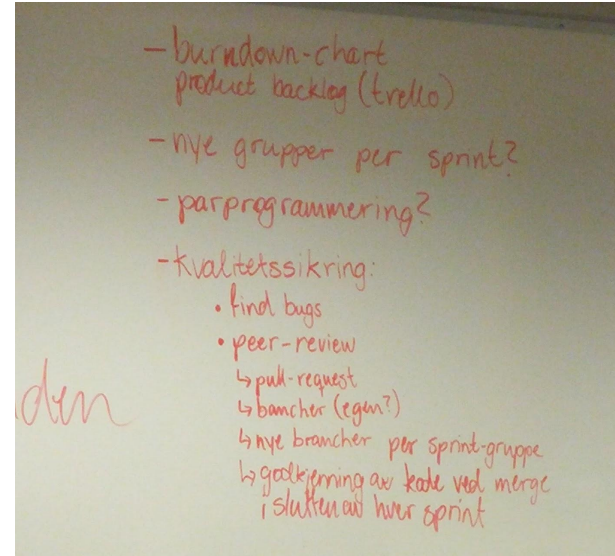 - burndown-chart
product backlog (trello)
- nye grupper per sprint?
- parprogrammering?
- kvalitetssikring:
• find bugs
• peer-review
↳ pull-request
↳ bancher (egen?)
↳ nye brancher per sprint-gruppe
↳ godkjenning av kode ved merge
i slutten av hver sprint
den